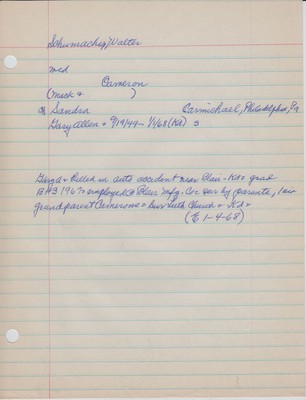 Schumacher, Walter
md
Cameron
(Mick & )
ch Sandra Carmichael, Philadelphia, Pa
Gary Allen * 9/19/49 - 1/1/68 (Kd) s
Gary * Killed in auto accident near Blair - Kd * grad
BHS 1967 * employed @ Blair Mfg. Co. sur by parents, 1 sis
grandparent Camerons * bur Luth Church * Kd *
(E 1-4-68)